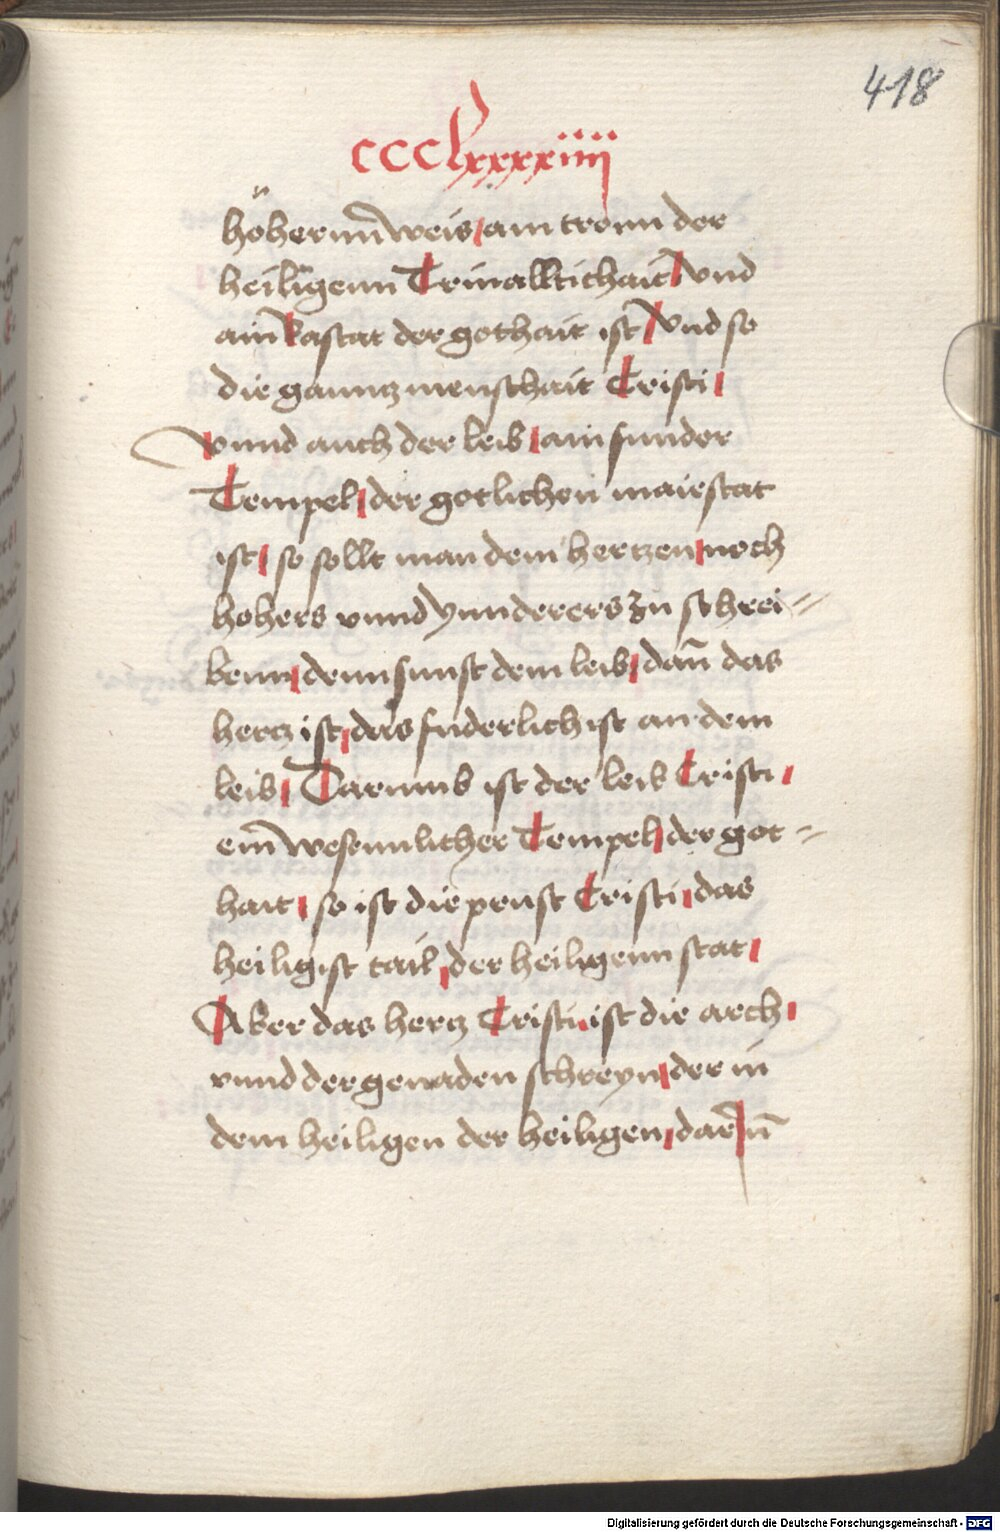 418
ccclxxxxiiii
höher nn̄ weis / ain tronn der
heiligenn Trinalltichait / vnd
ain kastat der gothait ist / Vnd so
die ganntz menschait Cristi /
vnnd auch der leib / ain sunder
Tempel / der gotlichen maiestat
ist / so sollt man dem hertzen / noch
hohers vnnd ynnderers zu schrei=
benn / denn sunst dem leib / dan̄ das
hertz ist / das suderlich ist an dem
leib / Darumb ist der leib Cristi /
ein̄ wesennlicher Tempel / der got=
hait / so ist die prust Cristi / das
heiligist tail / der heiligenn stat /
Aber das hertz Cristi / ist die arch /
vnnd der genaden schreyn / der in
dem heiligen der heiligen / dar Jn̄
Digitalisierung gefördert durch die Deutsche Forschungsgemeinschaft - DFG